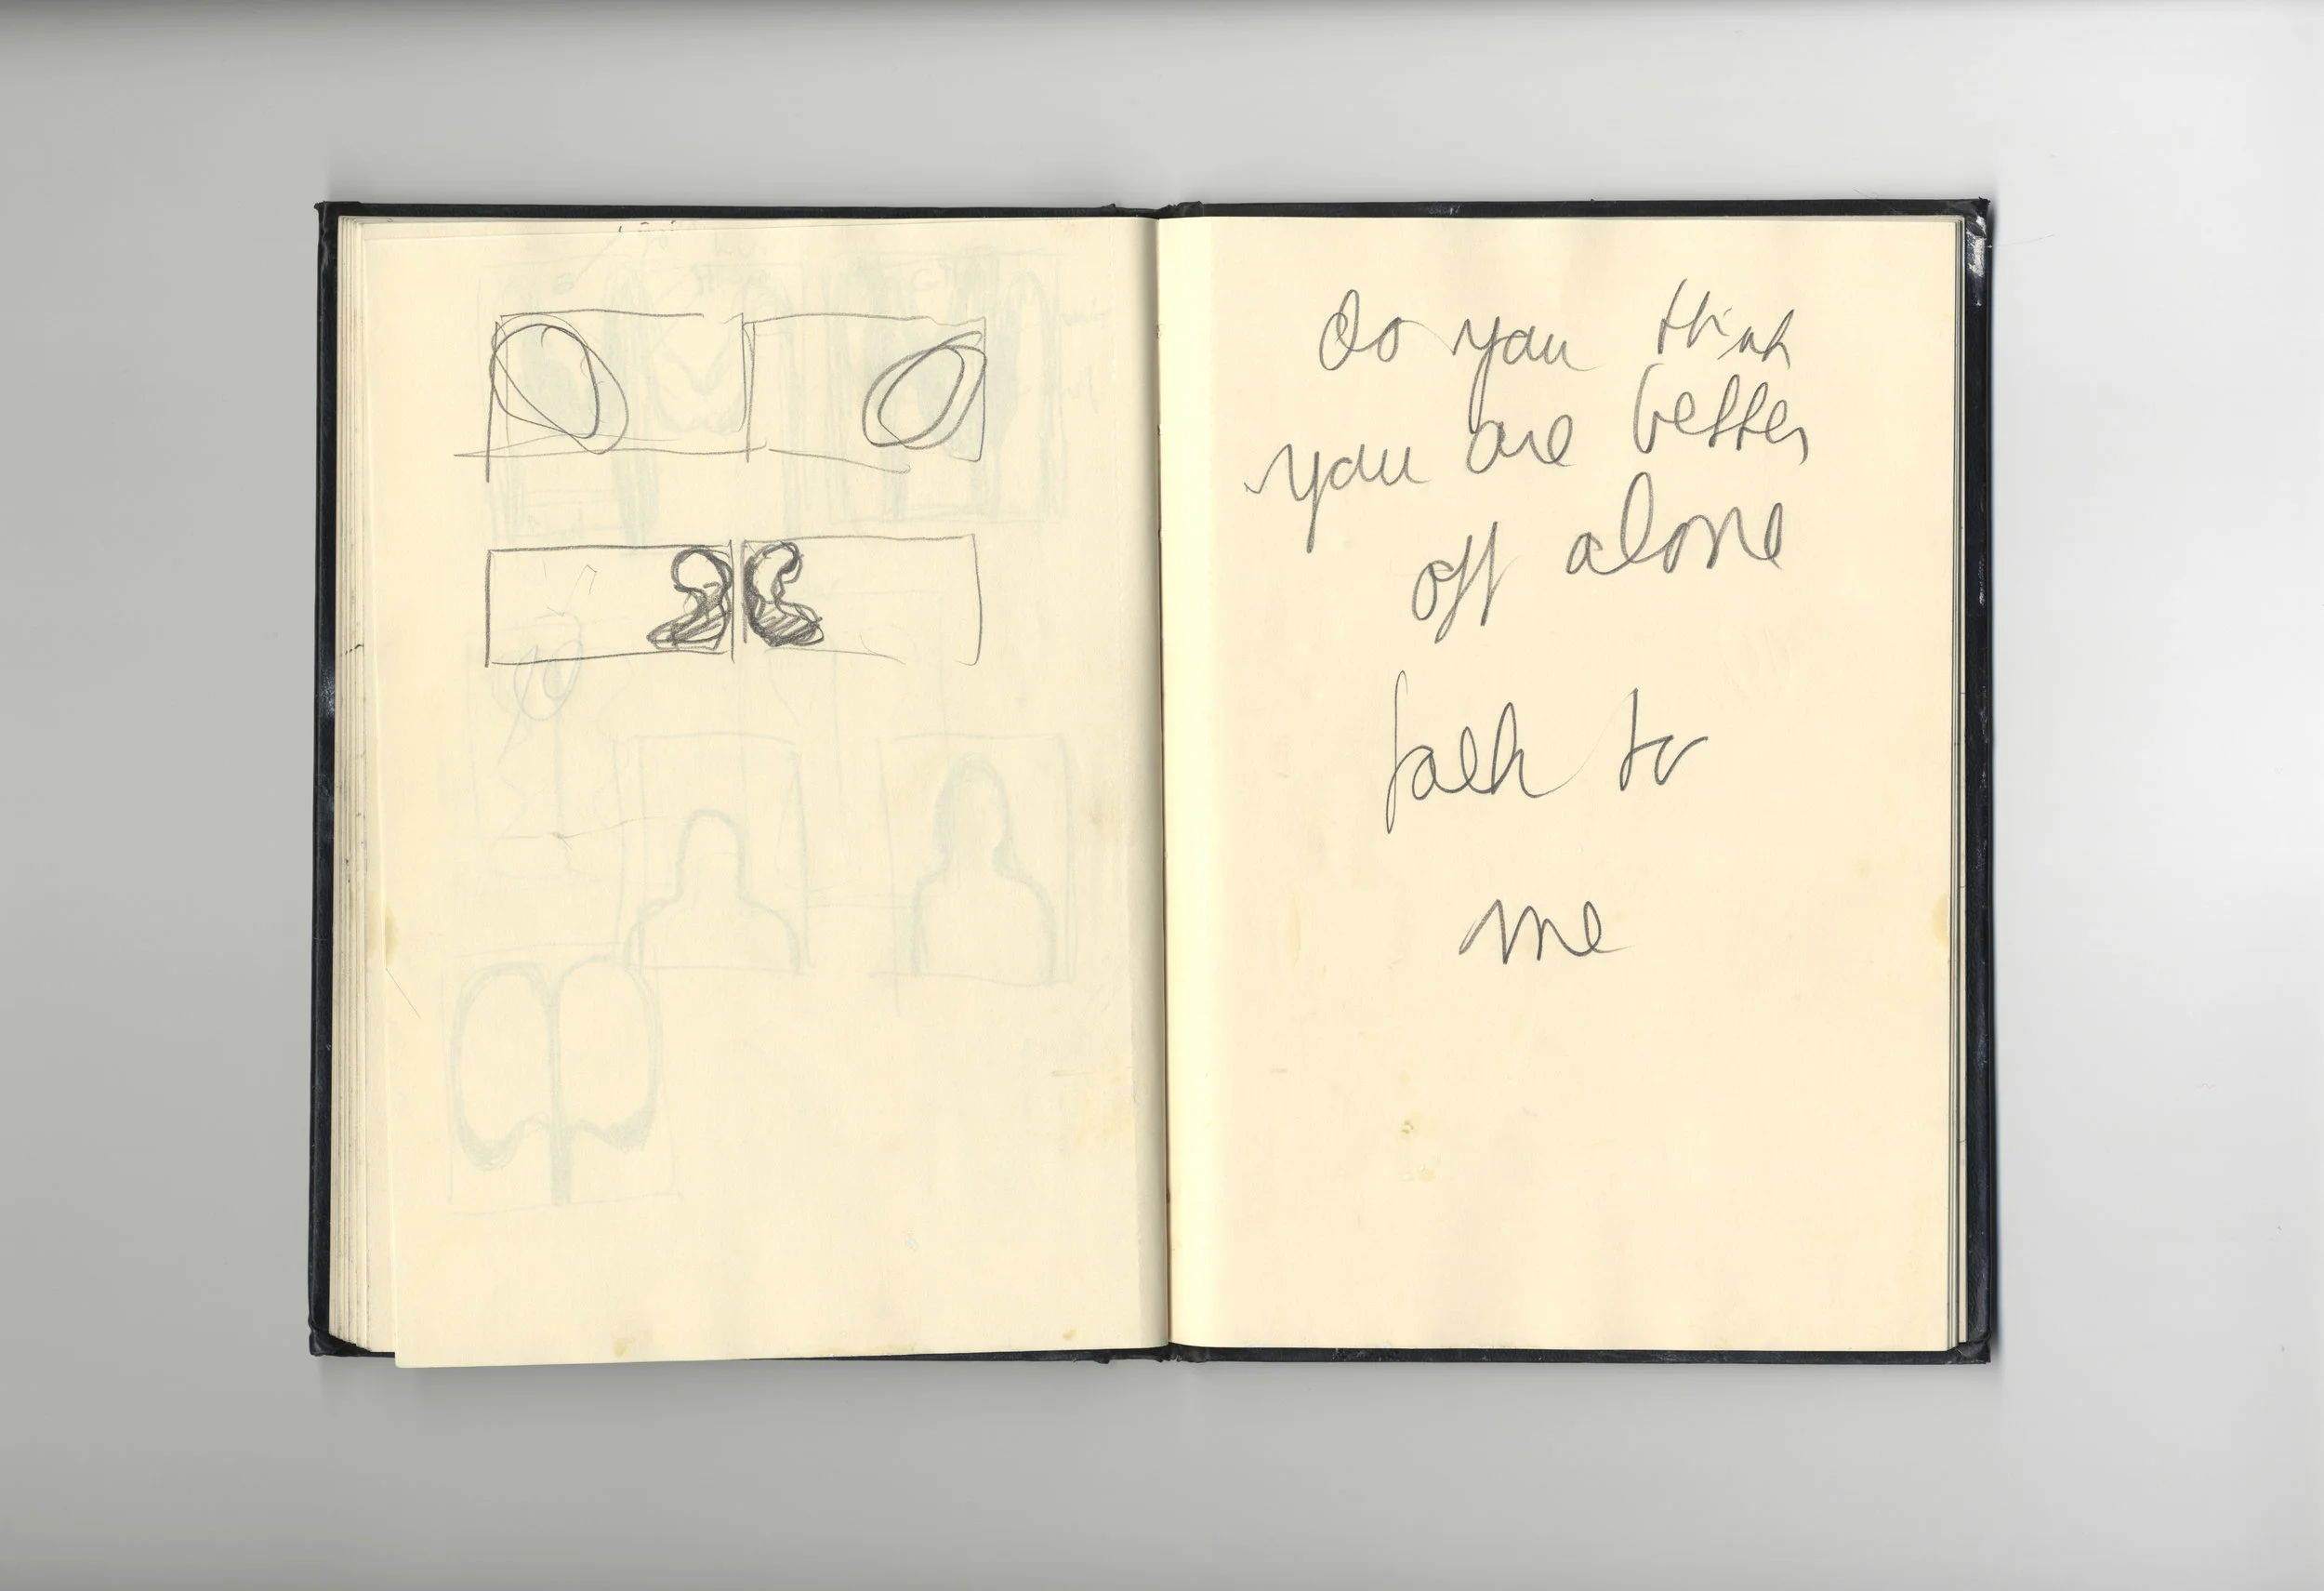 do you think
you are better
off alone
talk to
me